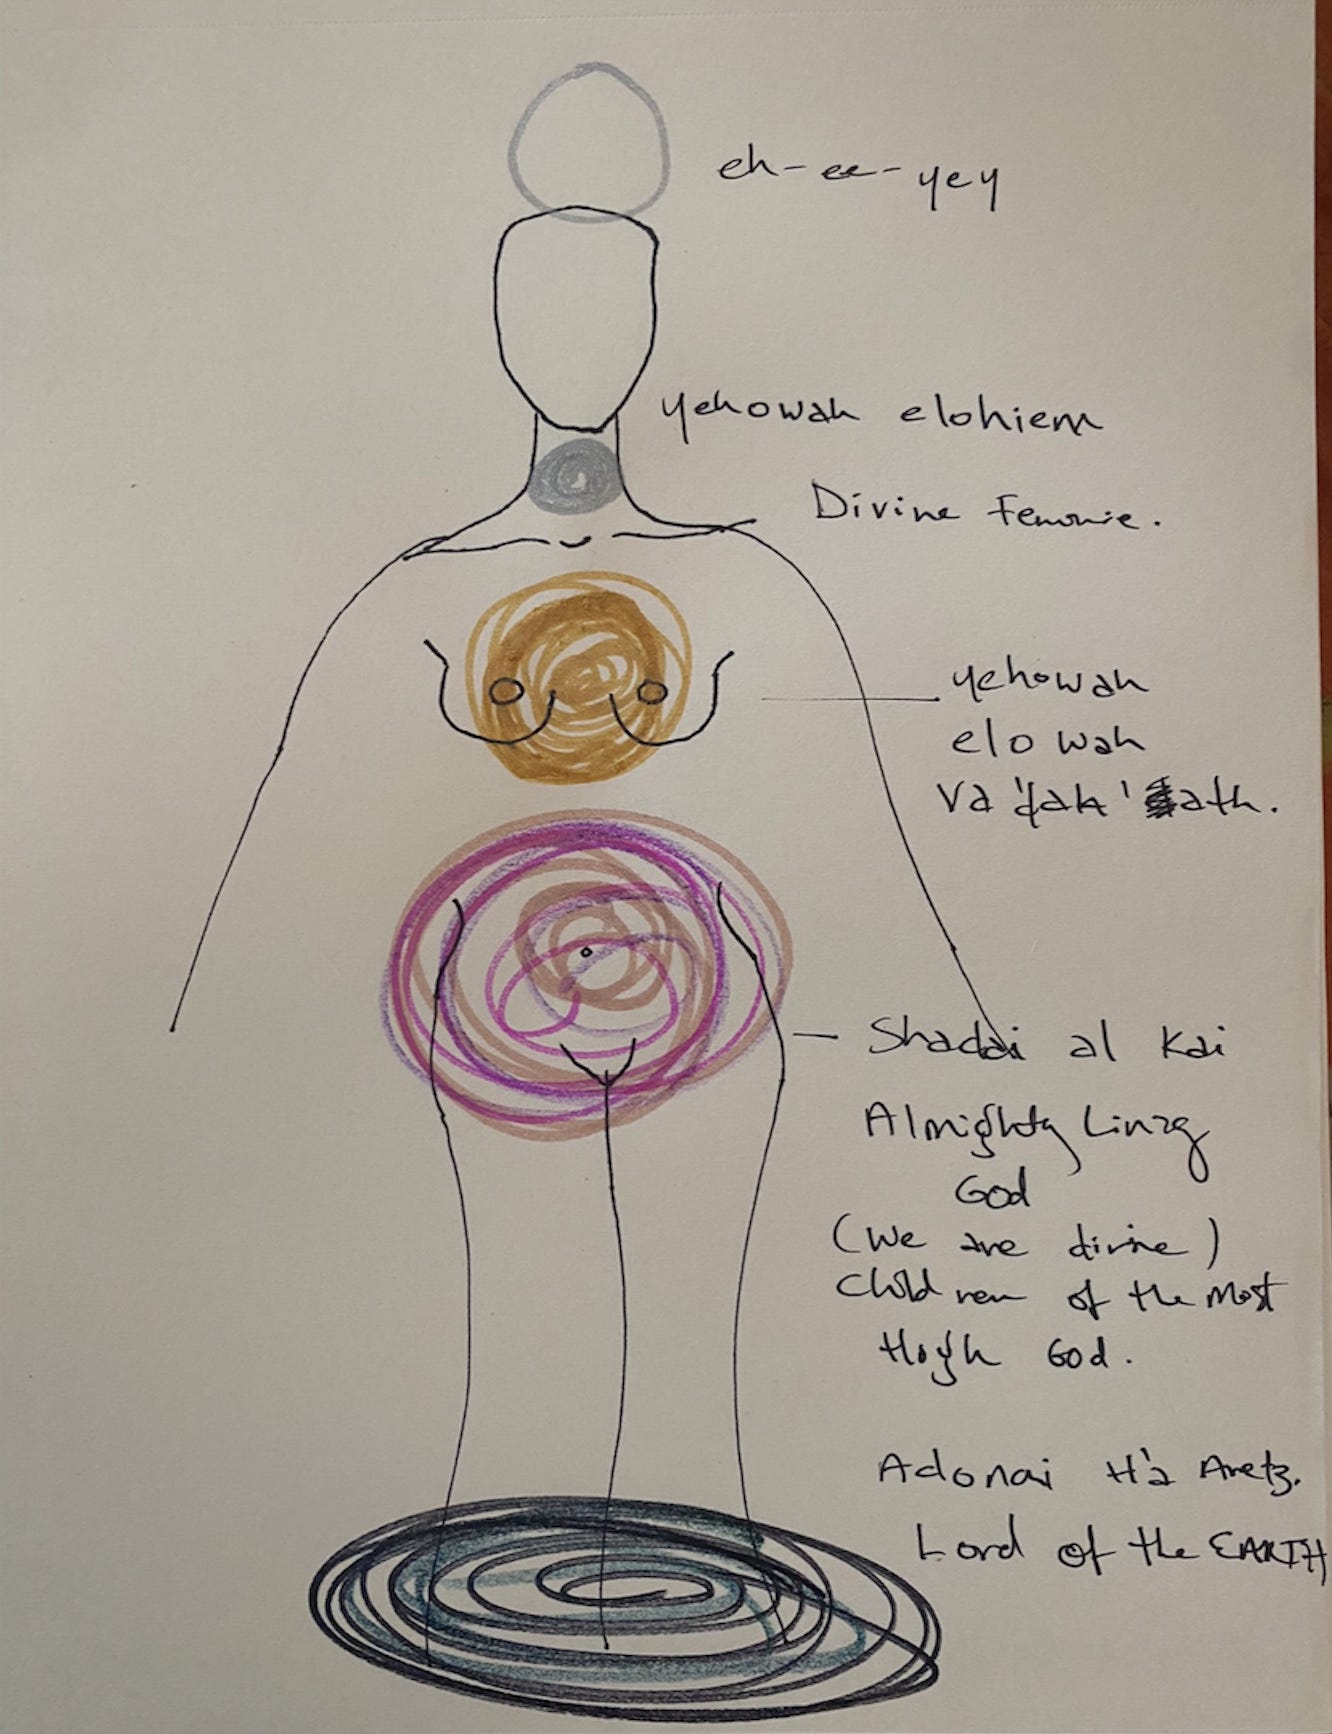 eh-ee-yey
yehowah elohiem
Divine Femonie.
yehowah
elowah
va 'dah' ath.
Shadai al Kai
Almighty Living
God
(We are divine)
Children of the Most
High God.
Adonai H'a Aretz.
Lord of the EARTH